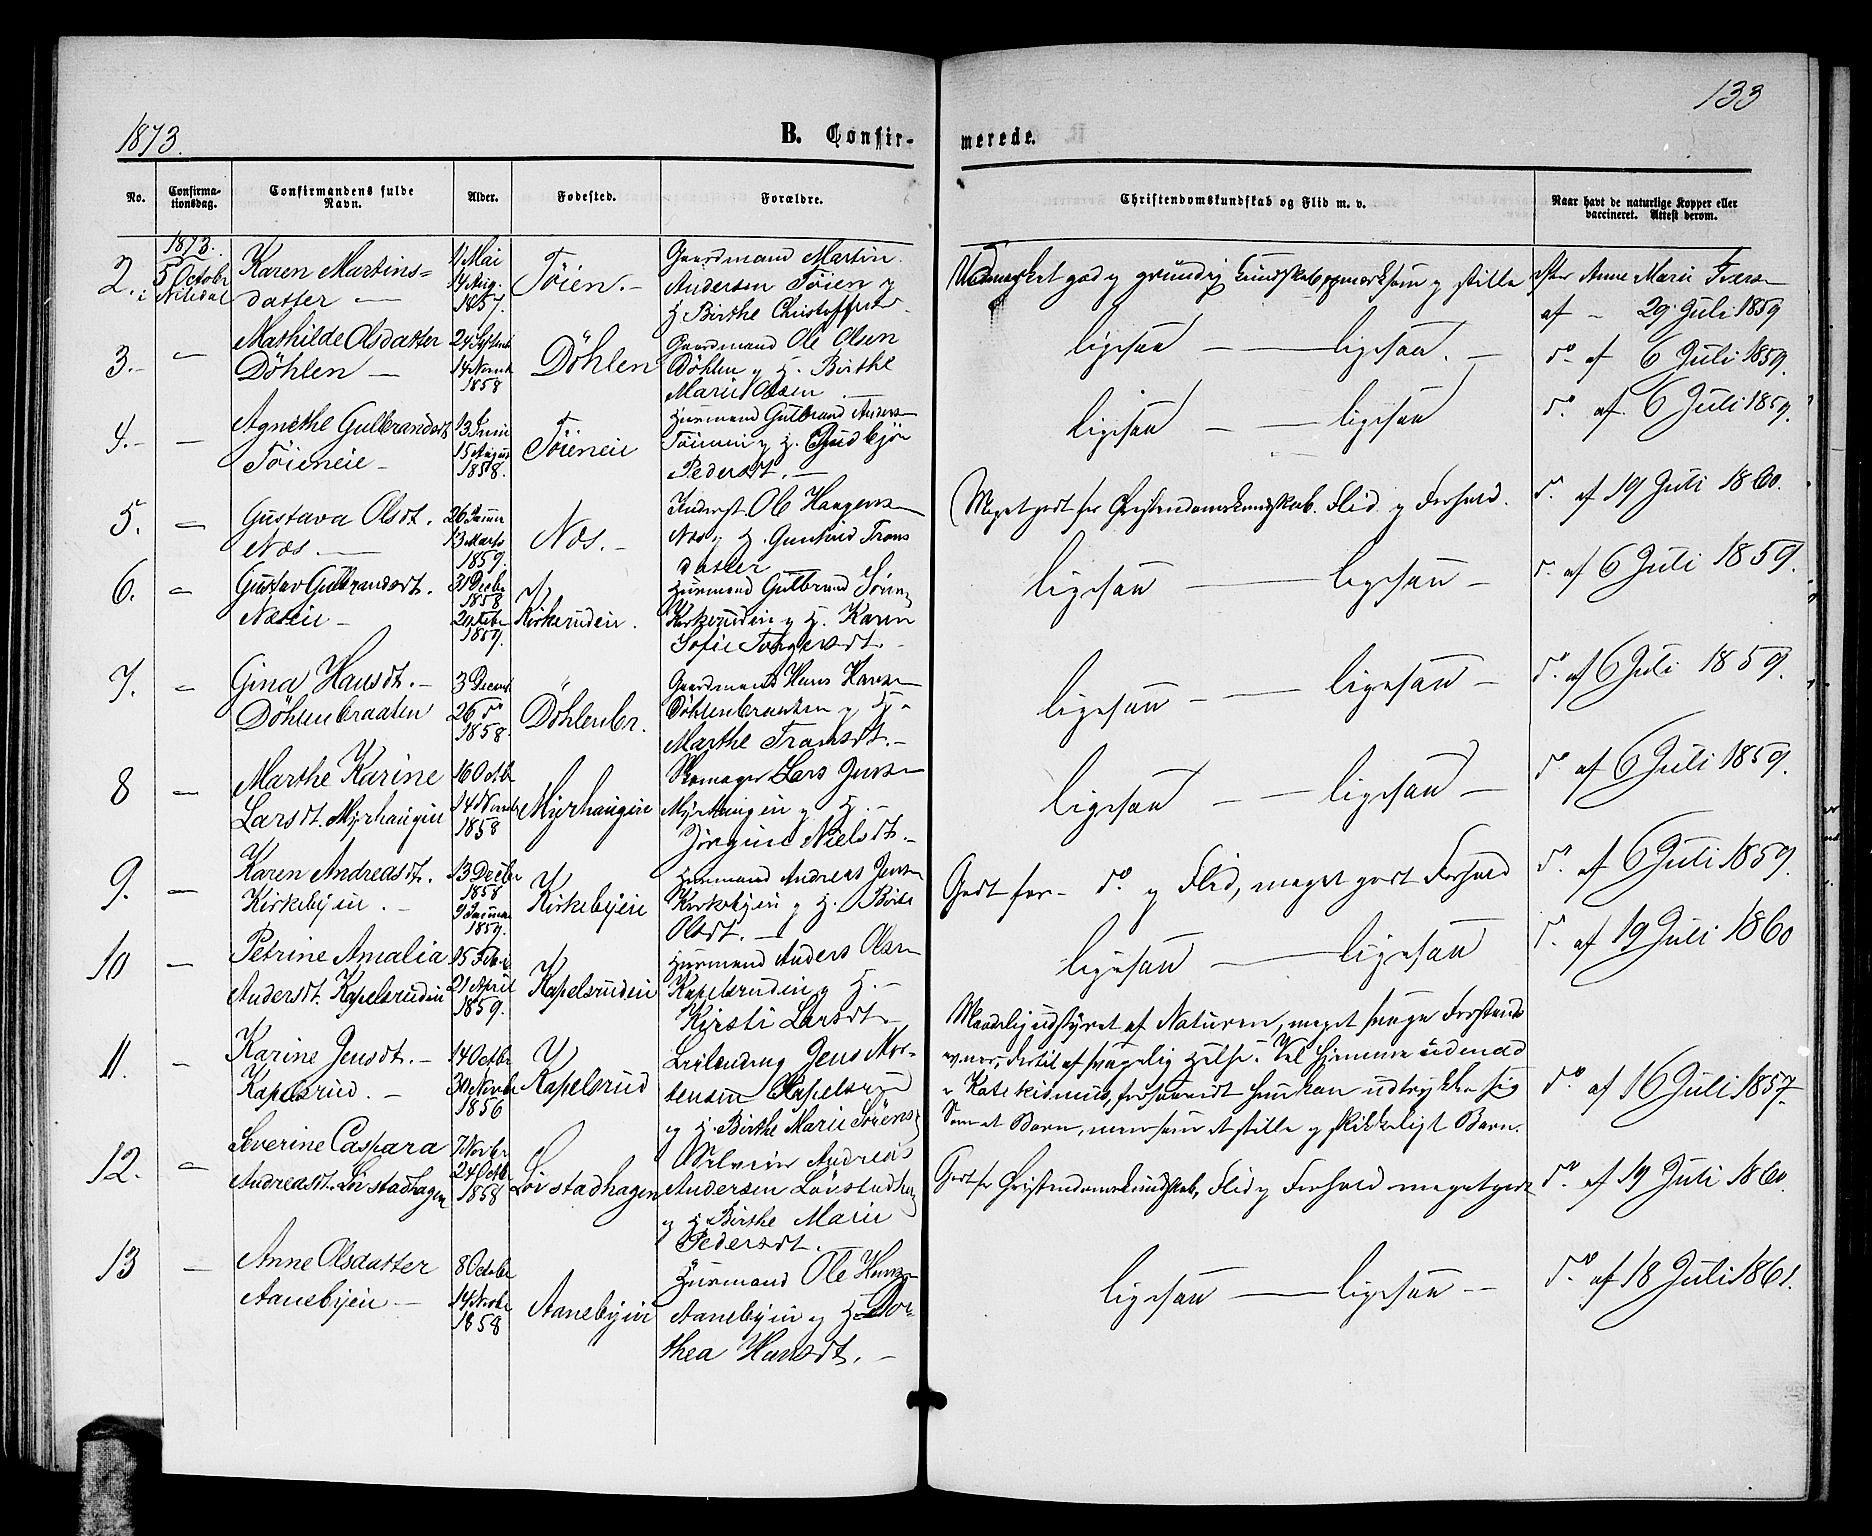 133
1873.
B. Confir-
merede.
No.
Confirma-
tionsdag.
Confirmandens fulde
Navn.
Alder.
Fødested.
Forældre.
Christendomskundskab og Flid m. v.
Naar havt de naturlige Kopper eller
vaccineret. Attest derom.
1873.
2. 5 October i Nitedal
Karen Martins=
datter —
1 Mai
14 Aug.
1857.
Töien. —
Gaardmand Martin
Andersen Töien og
H. Birthe Christoffersd
Udmærket god og grundig Kundskab opmærksom og stille
efter Anne Marie Iversen
af - 29 Juli 1859
3. —
Mathilde Olsdatter
Döhlen —
24 Septemb
14 Novemb
1858
Döhlen
Gaardmand Ole Olsen
Döhlen og H. Birthe
Marie Olsen
ligesaa — ligesaa. —
do af 6 Juli 1859.
4. —
Agnethe Gulbrandsdt
Töieneie —
13 Juni
15 August
1858.
Töieneie
Huusmand Gulbrand Anders
Töieneie og H. Gudbjör
Pedersdt. —
ligesaa — ligesaa
do af 6 Juli 1859.
5. —
Gustava Olsdt.
Næs —
26 Januar
13 Marts
1859.
Næs. —
Inderst Ole Haagens
Næs og H. Gunhild Frans
datter
Meget godt for Christendomskundskab. Flid og Forhold.
do af 19 Juli 1860.
6. —
Gustav Gulbrandsdt.
Næseie —
31 Decbr
1858
Febr
1859.
Kirkerudeie.
Huusmand Gulbrand Sören
Kirkerudeie og H. Karen
Sofie Torgersdt.
ligesaa — ligesaa —
do af 6 Juli 1859.
7. —
Gina Hansdt. —
Döhlenbraaten
3 Decemb
26 do
1858.
Döhlenbr.
Gaardmand Hans Hansen
Döhlenbraaten og H.
Marthe Fransdt. —
ligesaa — ligesaa —
do af 6 Juli 1859.
8 —
Marthe Karine
Larsdt. Myrhaugen
16 Octbr
14 Novemb
1858
Myrhaugen
Skomager Lars Jens
Myrhaugen og H. —
Jörgine Nielsdt. —
ligesaa — ligesaa —
do af 6 Juli 1859.
9. —
Karen Andreasdt.
Kirkebyeie. —
13 Decbr
1858
9 Januar
1859.
Kirkebyeie
Huusmand Andreas Jens
Kirkebyeie og H. Berte
Olsdt. —
Godt for — do og Flid, meget godt Forhold
do af 6 Juli 1859.
10 —
Petrine Amalia
Andersdt. Kapelsrudeie
15 Febr
21 April
1859.
Kapelsrudeie
Huusmand Anders Olsen
Kapelsrudeie og H. —
Kirsti Larsdt. —
ligesaa — ligesaa
do af 19 Juli 1860
11. —
Karine Jensdt. —
Kapelsrud. —
14 Octbr
30 Novbr
1856
Kapelsrud
Leilænding Jens Mor-
tensen Kapelsrud
og H. Birthe Marie Sörens
Maadelig udstyret af Naturen, meget svage Forstands
evner, dertil af svagelig Helse. Vel hjemme udenad
i Katekismus, forsaavidt hun kan udtrykke sig
Som et Barn, men som et stille og skikkeligt Barn.
do af 16 Juli 1857.
12. —
Severine Caspara
Andreasdt. Löistadhagen
7 Novbr
24 Octbr
1858
Löistadhagen
Selveier Andreas
Andersen Löistadhag
og H. Birthe Marie
Pedersdt.
Godt for Christendomskundskab, Flid og Forhold meget godt
do af 19 Juli 1860.
13 —
Anne Olsdatter
Aanebyeie —
8 October
14 Novbr
1858
Aanebyeie
Huusmand Ole Hans
Aanebyeie og H. Do-
thea Hansdt. —
ligesaa — ligesaa —
do af 18 Juli 1861.